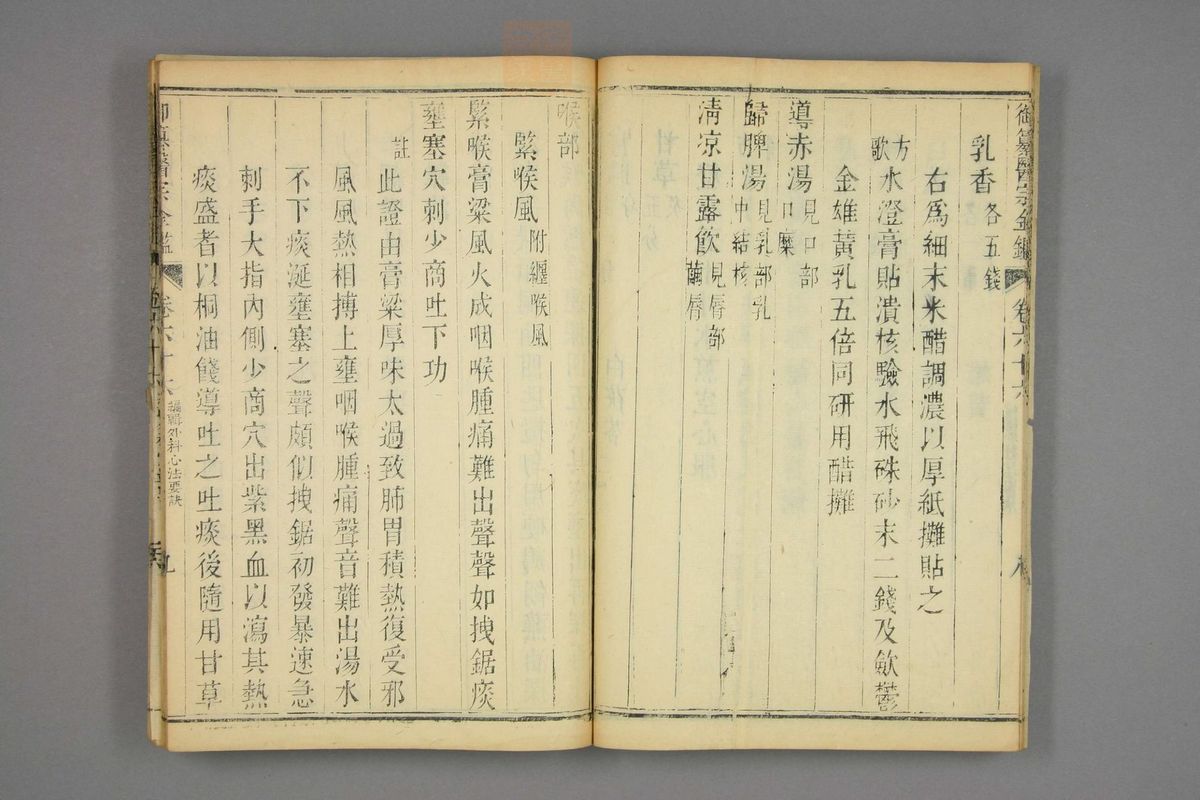 御纂醫宗金鑑
卷六十六
乳香各五錢
右爲細末米醋調濃以厚紙攤貼之
方歌
水澄膏貼潰核驗水飛硃砂末二錢及歛鬱
金雄黃乳五倍同研用醋攤
導赤湯見口部口糜
歸脾湯見乳部乳中結核
清凉甘露飲見唇部繭唇
喉部
緊喉風附纏喉風
緊喉膏粱風火成咽喉腫痛難出聲聲如拽鋸痰
壅塞穴刺少商吐下功
註
此證由膏粱厚味太過致肺胃積熱復受邪
風風熱相搏上壅咽喉腫痛聲音難出湯水
不下痰涎壅塞之聲頗似拽鋸初發暴速急
刺手大指內側少商穴出紫黑血以瀉其熱
痰盛者以桐油餞導吐之吐痰後隨用甘草
卷六十六
編輯外科心法要訣
九